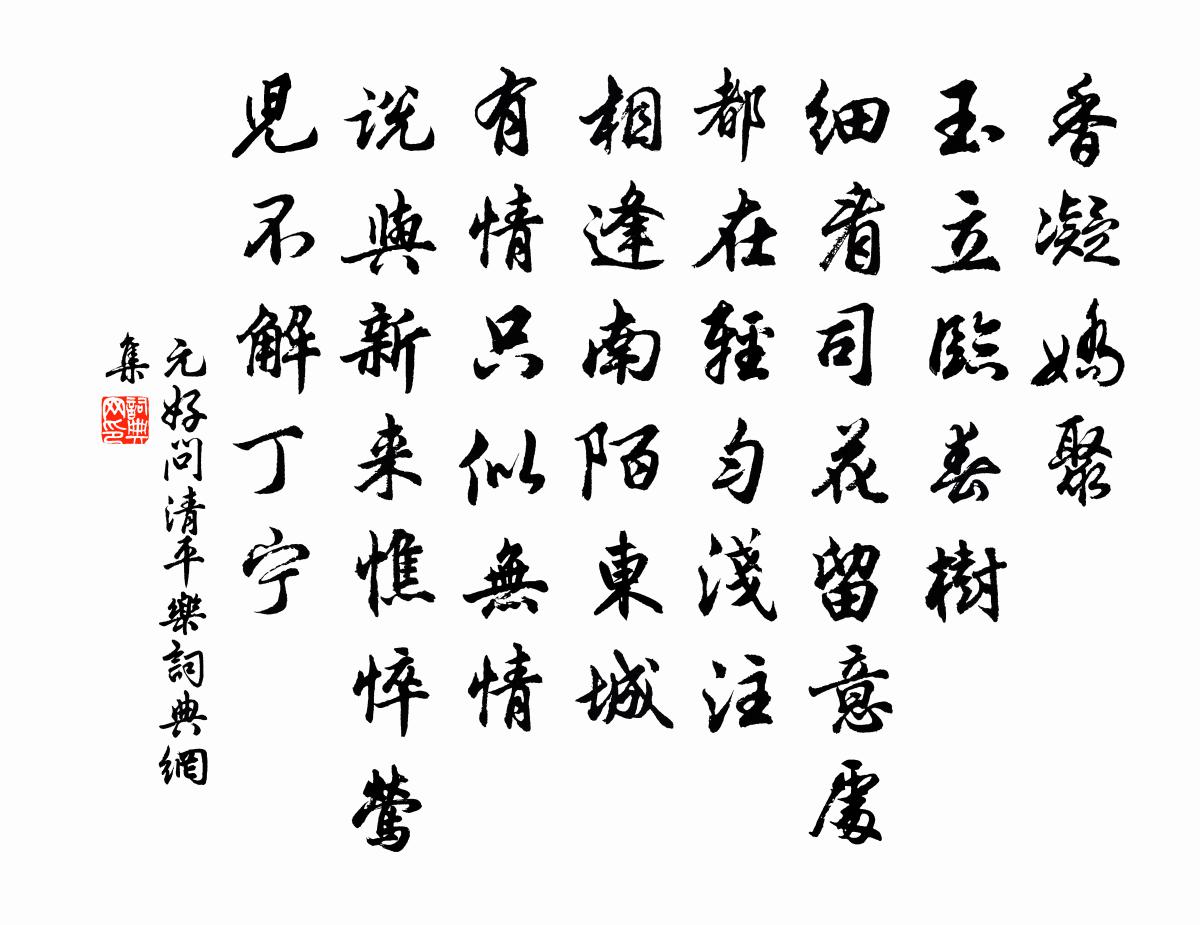 香凝嬌聚
玉立臨春樹
細看司花留意處
都在輕勻淺注
相逢南陌東城
有情只似無情
說與新来憔悴鶯
児不解丁宁
元好问清平樂詞典網
集
詞典网印